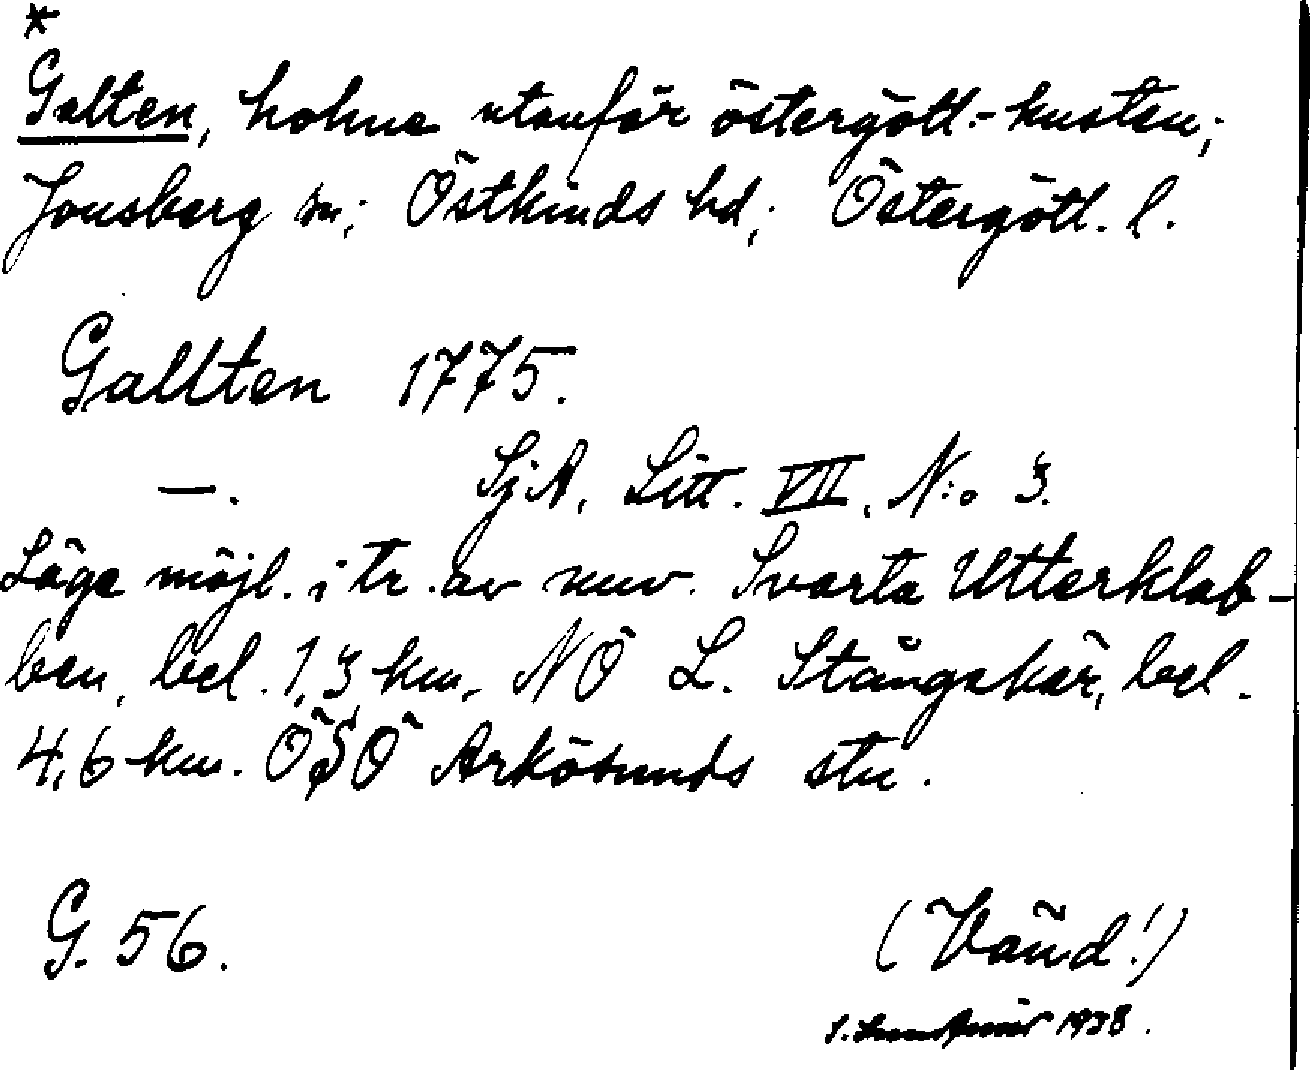 *
Galten, holme utanför östergötl.-kusten;
Jonsberg sn; Östkinds hd; Östergötl. l.
Gallten 1775.
—. SjA, Litt. VII, N:o 3.
Läge möjl. i tr. av nuv. Svarta Utterklab-
ben, bel. 1,3 km. NÖ L. Stångskär, bel.
4,6 km. ÖSÖ Arkösunds stn.
G. 56.
(Vänd!)
1938.